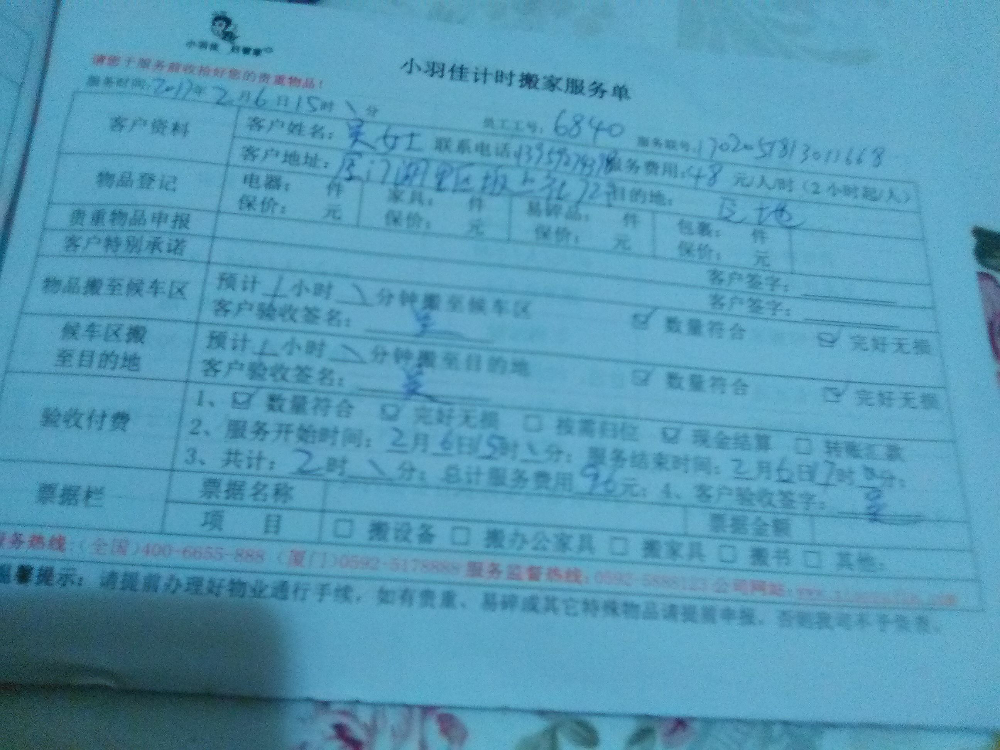 小羽佳 好管家
小羽佳计时搬家服务单
请您于服务前收拾好您的贵重物品！
服务时间：2017年2月6日15时\分 员工工号：6840 服务联号：
客户资料 客户姓名：吴女士 联系电话： 服务费用：48元/人/时（2小时起/人）
客户地址： 目的地：
物品登记 电器： 件 家具： 件 易碎品： 件 包裹： 件
保价： 元 保价： 元 保价： 元 保价： 元
贵重物品申报 客户签字：
客户特别承诺 客户签字：
物品搬至候车区 预计1小时\分钟搬至候车区
客户验收签名：吴 ☑ 数量符合 ☑ 完好无损
候车区搬至目的地 预计1小时\分钟搬至目的地
客户验收签名：吴 ☑ 数量符合 ☑ 完好无损
验收付费 1、☑ 数量符合 ☑ 完好无损 □ 按需归位 ☑ 现金结算 □ 转账汇款
2、服务开始时间：2月6日15时\分；服务结束时间：2月6日17时\分；
3、共计：2时\分；总计服务费用96元；4、客户验收签字：吴
票据栏 票据名称 票据金额
项 目 □ 搬设备 □ 搬办公家具 □ 搬家具 □ 搬书 □ 其他：
服务热线：（全国）400-6655-888（厦门）0592-5178888 服务监督热线：0592-5888123 公司网站：
温馨提示：请提前办理好物业通行手续，如有贵重、易碎或其它特殊物品请提前申报，否则我司不予负责。